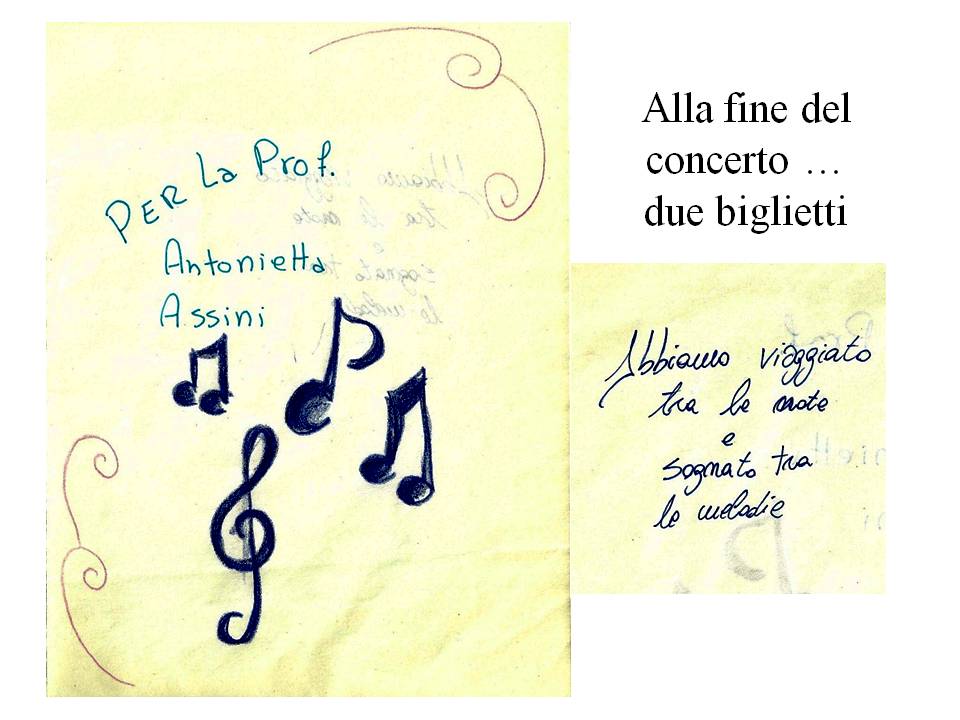 Alla fine del
concerto …
due biglietti
PER La Prof.
Antonietta
Assini
Abbiamo viaggiato
tra le note
e
sognato tra
le melodie